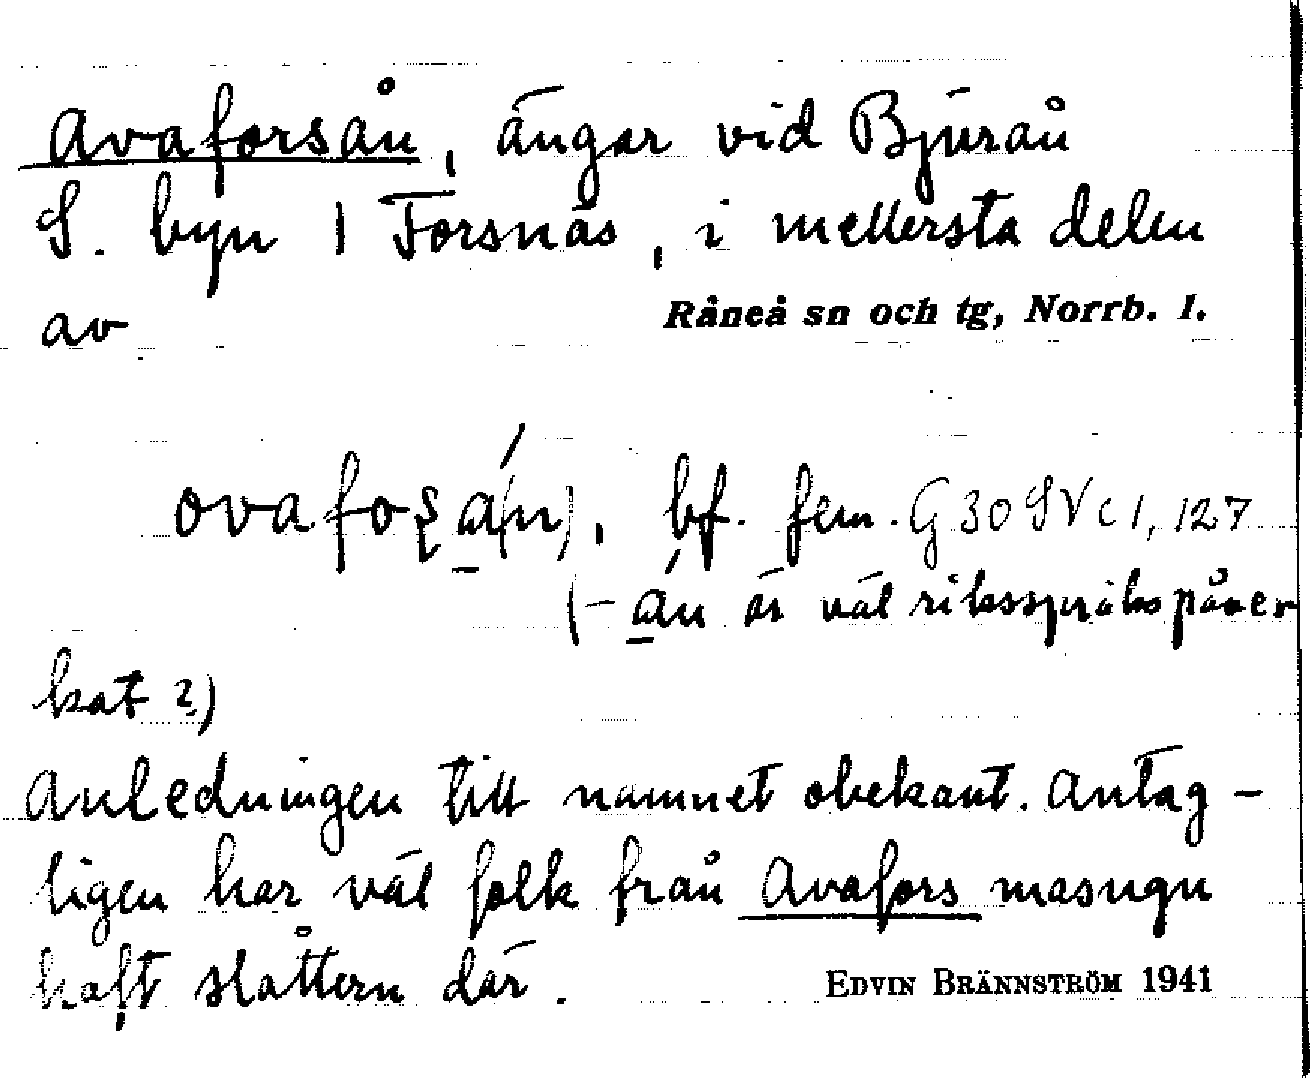 Avaforsån, ängar vid Bjurån
S. byn 1 Forsnäs, i mellersta delen
av Råneå sn och tg, Norrb. l.
ovafoṣá̱(n), bf. fem. G30SVc1, 127
(-á̱n är väl riksspråkspåver
kat?)
Anledningen till namnet obekant. Antag-
ligen har väl folk från Avafors masugn
haft slåttern där.
EDVIN BRÄNNSTRÖM 1941